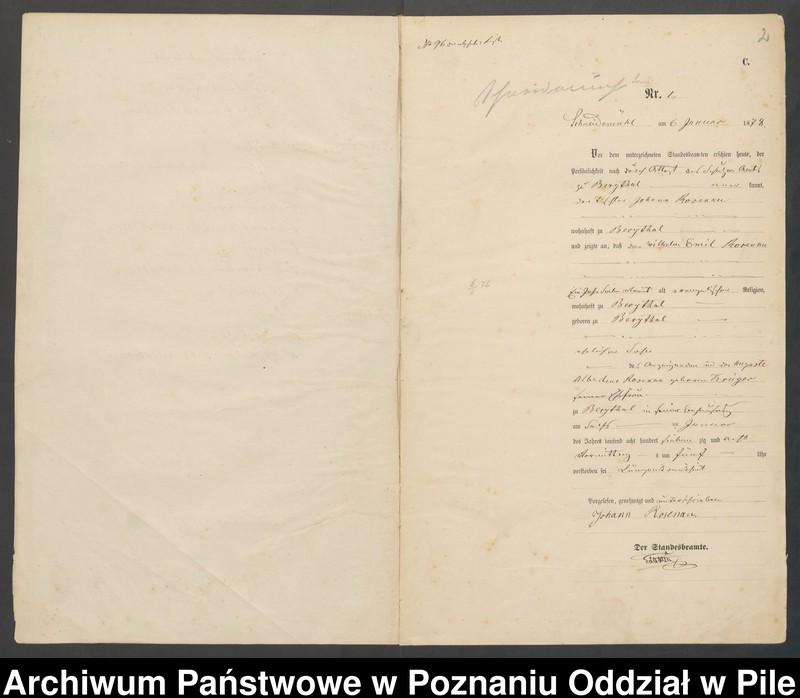 2
C.
Nr. 1.
Schneidemühl am 6 Januar 1878.
Vor dem unterzeichneten Standesbeamten erschien heute, der
Persönlichkeit nach durch Attest des Schulzen Amts
zu Bergthal kannt,
der Johann Rosenau
wohnhaft zu Bergthal
und zeigte an, daß der Wilhelm Emil Rosenau
alt evangelischer Religion,
wohnhaft zu Bergthal
geboren zu Bergthal
ehelicher Sohn
des Anzeigenden und der Auguste
Albertine Rosenau geborene Krüger
seiner Ehefrau
zu Bergthal in seiner Behausung
am Sechs ten Januar
des Jahres tausend acht hundert sieben zig und acht
Vormittags um fünf Uhr
verstorben sei
Vorgelesen, genehmigt und unterschrieben
Johann Rosenau
Der Standesbeamte.
Archiwum Państwowe w Poznaniu Oddział w Pile